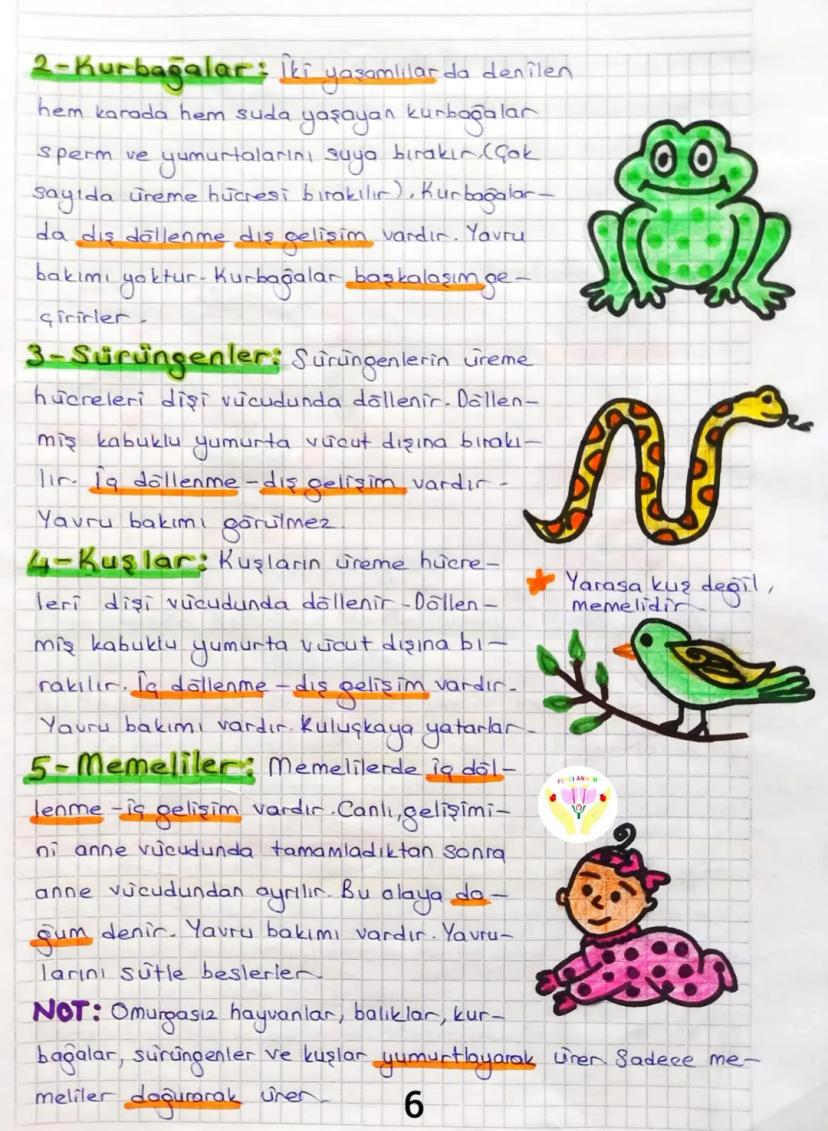 2-Kurbağalar: İki yaşamlılar da denilen
hem karada hem suda yaşayan kurbağalar
sperm ve yumurtalarını suya bırakır.(Çok
sayıda üreme hücresi bırakılır). Kurbağalar-
da dış döllenme dış gelişim vardır. Yavru
bakımı yoktur. Kurbağalar başkalaşım ge-
çirirler.
3-Sürüngenler: Sürüngenlerin üreme
hücreleri dişi vücudunda döllenir. Döllen-
miş kabuklu yumurta vücut dışına bırakı-
lır. İç döllenme-dış gelişim vardır.
Yavru bakımı görülmez.
4-Kuşlar: Kuşların üreme hücre-
leri dişi vücudunda döllenir. Döllen-
miş kabuklu yumurta vücut dışına bı-
rakılır. İç döllenme-dış gelişim vardır.
Yavru bakımı vardır. Kuluçkaya yatarlar.
Yarasa kuş değil,
memelidir.
5-Memeliler: Memelilerde iç döl-
lenme-iç gelişim vardır. Canlı, gelişimi-
ni anne vücudunda tamamladıktan sonra
anne vücudundan ayrılır. Bu olaya do-
ğum denir. Yavru bakımı vardır. Yavru-
larını sütle beslerler.
NOT: Omurgasız hayvanlar, balıklar, kur-
bağalar, sürüngenler ve kuşlar yumurtlayarak ürer. Sadece me-
meliler doğurarak ürer.
6